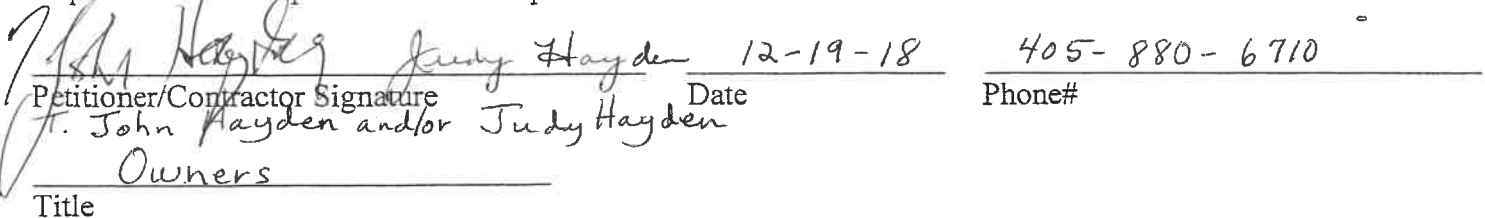 John Hayden Judy Hayden 12-19-18 405-880-6710
Petitioner/Contractor Signature Date Phone#
T. John Hayden and/or Judy Hayden
Owners
Title